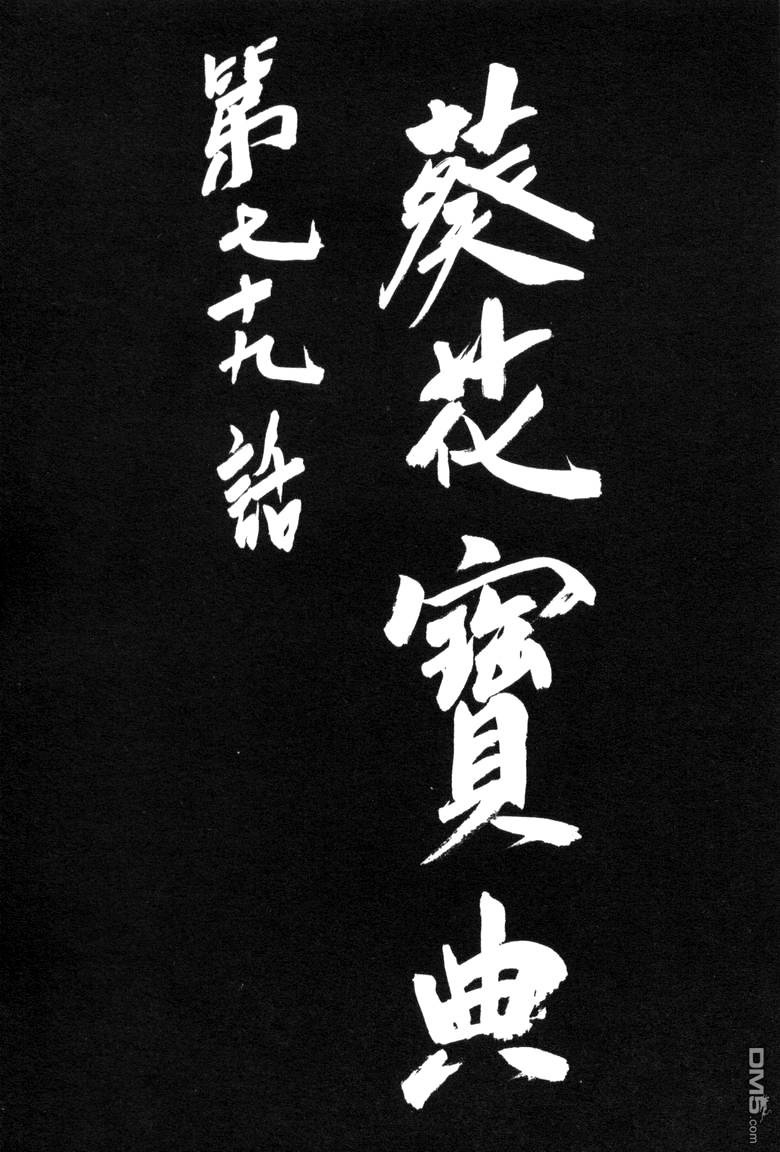 葵花寶典
第七十九話
DM5.com